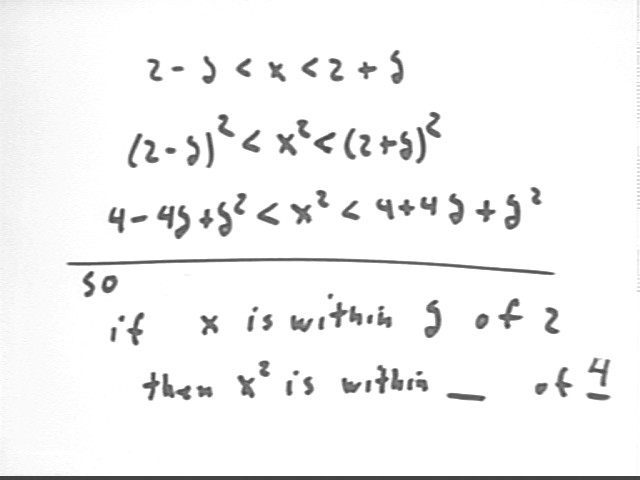 2 - δ < x < 2 + δ
(2 - δ)² < x² < (2 + δ)²
4 - 4δ + δ² < x² < 4 + 4δ + δ²
so
if x is within δ of 2
then x² is within __ of 4